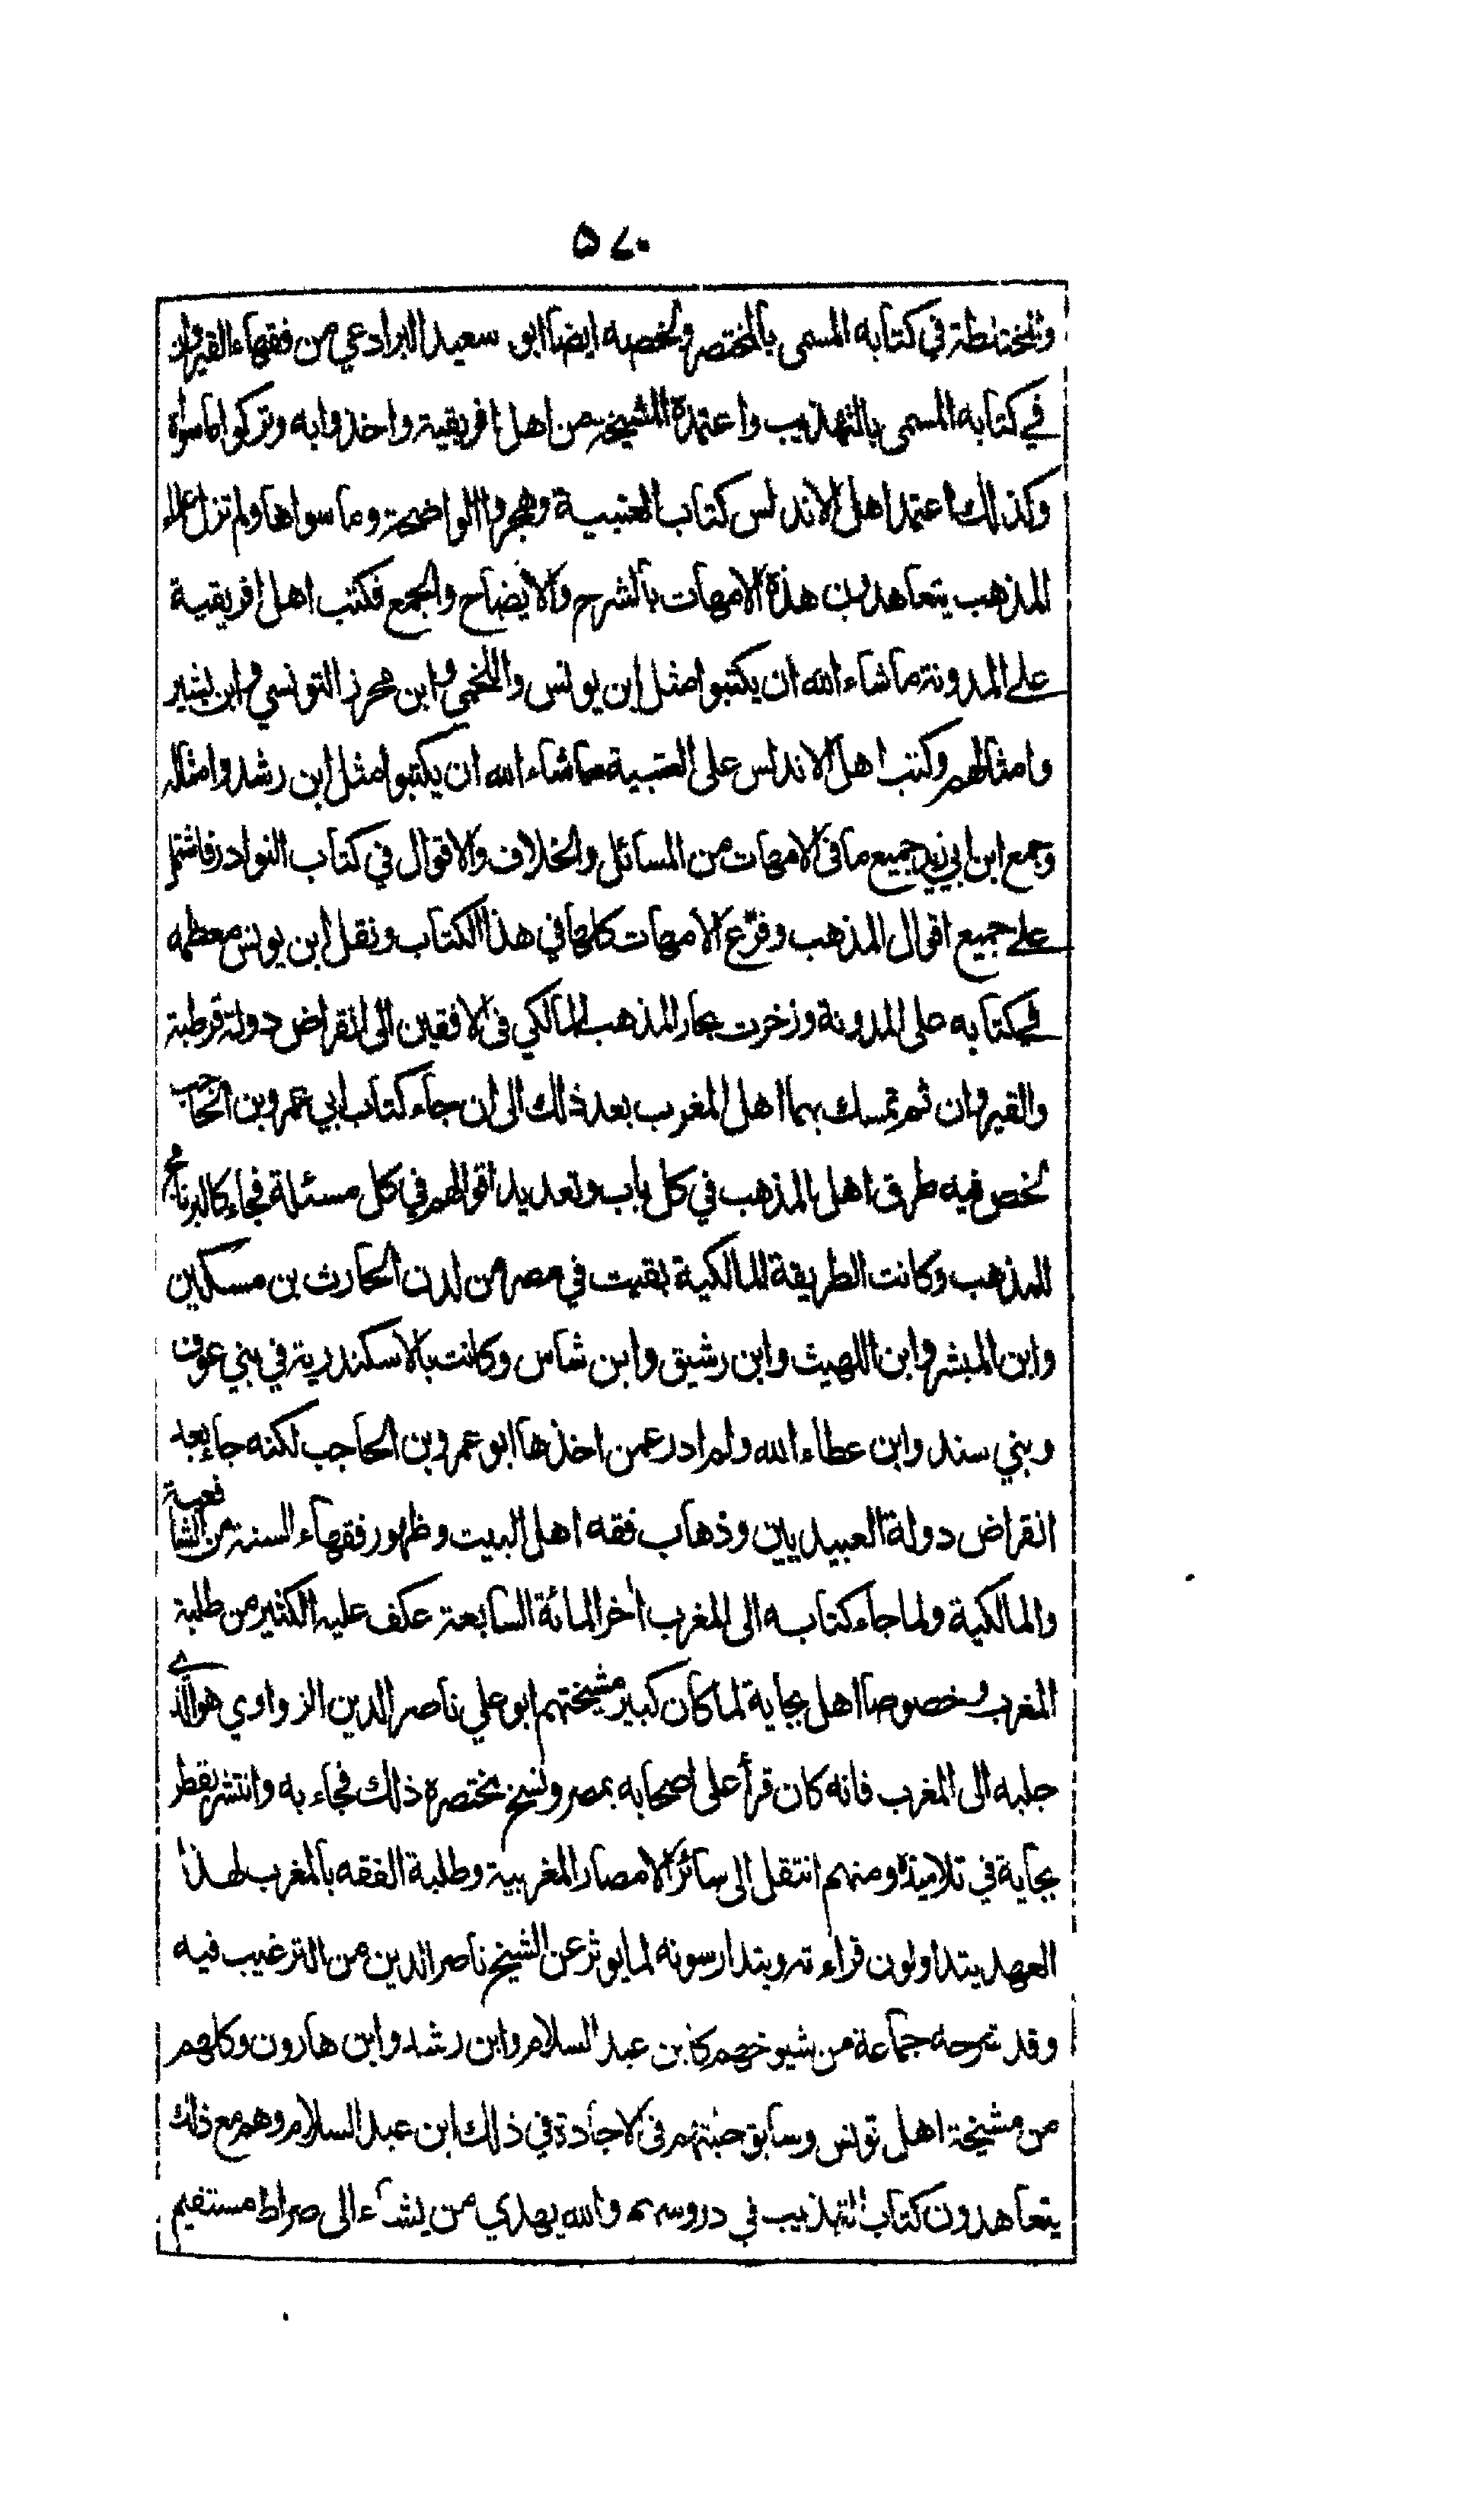 ٥٧٠
والمختلطة في كتابه المسمى بالمختصر ولخصه ايضا ابو سعيد البرادعي من فقهاء القيروان
في كتابه المسمى بالتهذيب واعتمده المشيخة من اهل افريقية واخذوا به وتركوا ما سواه
وكذلك اعتمد اهل الاندلس كتاب العتبية وهجروا الواضحة وما سواها ولم تزل علماء
المذهب يتعاهدون هذه الامهات بالشرح والايضاح والجمع فكتب اهل افريقية
على المدونة ما شاء الله ان يكتبوا مثل ابن يونس واللخمي وابن محرز التونسي وابن بشير
وامثالهم وكتب اهل الاندلس على العتبية ما شاء الله ان يكتبوا مثل ابن رشد وامثاله
وجمع ابن ابي زيد جميع ما في الامهات من المسائل والخلاف والاقوال في كتاب النوادر فاشتمل
على جميع اقوال المذهب وفرّع الامهات كلها في هذا الكتاب ونقل ابن يونس معظمه
في كتابه على المدونة وزخرت بحار المذهب المالكي في الافقين الى انقراض دولة قرطبة
والقيروان ثم تمسك بهما اهل المغرب بعد ذلك الى ان جاء كتاب ابي عمرو بن الحاجب
لخص فيه طرق اهل المذهب في كل باب وتعديد اقوالهم في كل مسئلة فجاء كالبرنامج
للمذهب وكانت الطريقة المالكية بقيت في مصر من لدن الحارث بن مسكين
وابن المبشر وابن اللهيث وابن رشيق وابن شاس وكانت بالاسكندرية في بني عوف
وبني سند وابن عطاء الله ولم ادر عمن اخذها ابو عمرو بن الحاجب لكنه جاء بعد
انقراض دولة العبيديين وذهاب فقه اهل البيت وظهور فقهاء السنة من الشافعية
والمالكية ولما جاء كتابه الى المغرب أخر المائة السابعة عكف عليه الكثير من طلبة
المغرب وخصوصا اهل بجاية لما كان كبير مشيختهم ابو علي ناصر الدين الزواوي هو الذي
جلبه الى المغرب فانه كان قرأ على اصحابه بمصر ونسخ مختصره ذلك فجاء به وانتشر بقطر
بجاية في تلاميذه ومنهم انتقل الى سائر الامصار المغربية وطلبة الفقه بالمغرب لهذا
العهد يتداولون قراءته ويتدارسونه لما يوثر عن الشيخ ناصر الدين من الترغيب فيه
وقد شرحه جماعة من شيوخهم كابن عبد السلام وابن رشد وابن هارون وكلهم
من مشيخة اهل تونس وسابق حلبتهم في الاجادة في ذلك ابن عبد السلام وهم مع ذلك
يتعاهدون كتاب التهذيب في دروسهم والله يهدي من يشاء الى صراط مستقيم